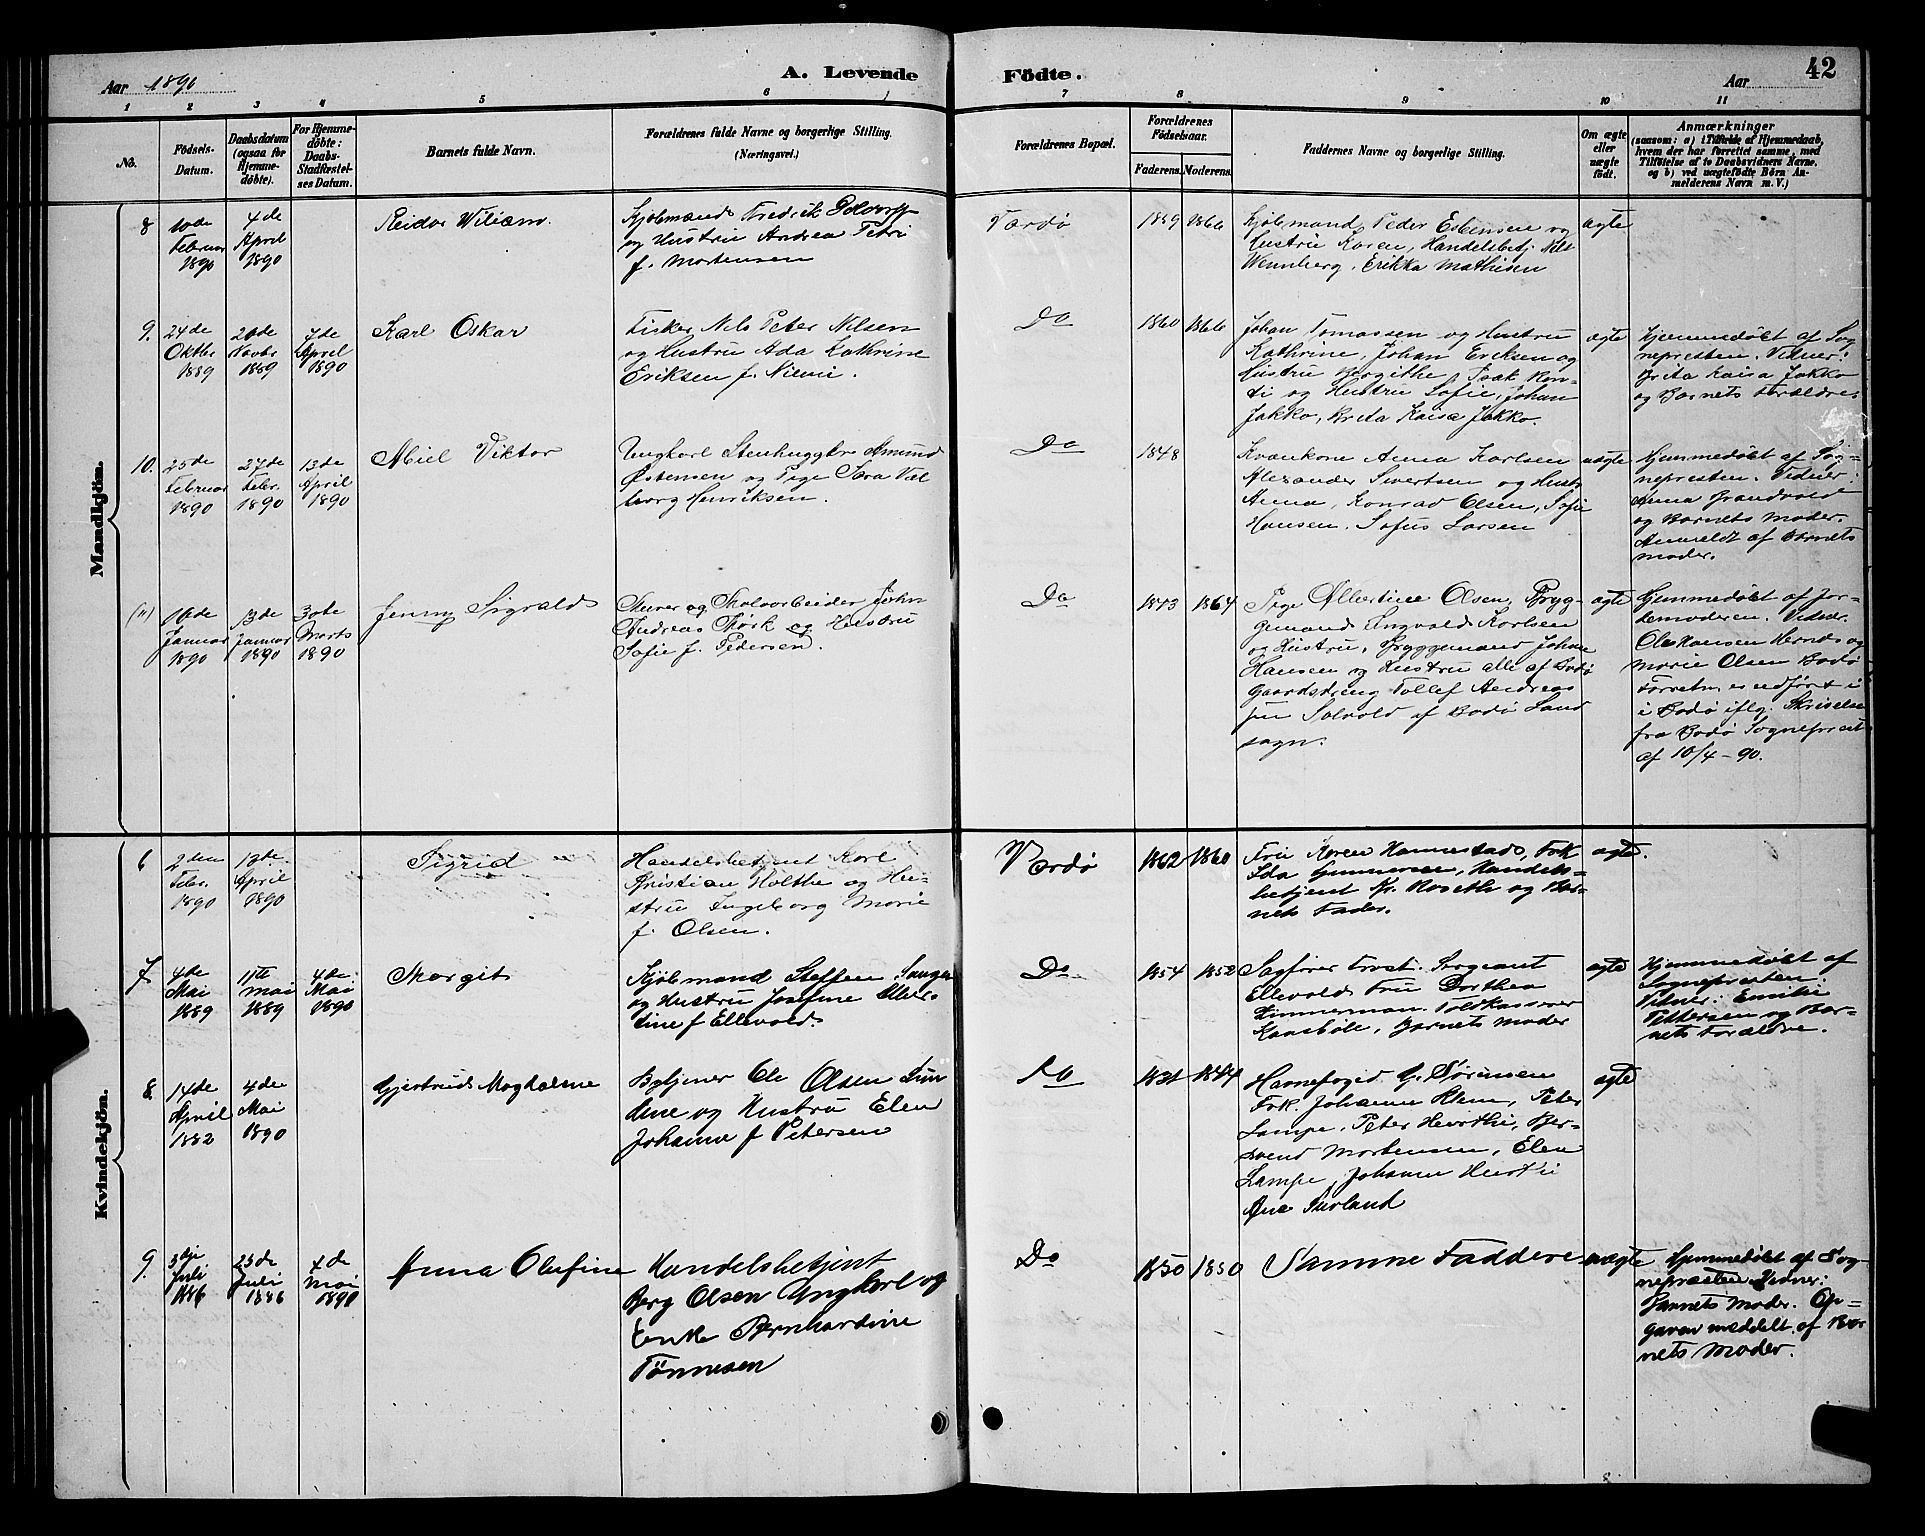 Aar 1890
A. Levende Födte.
Aar
42
1 2 3 4 5 6 7 8 9 10 11
No.
Födsels-Datum.
Daabsdatum (ogsaa for Hjemme-döbte).
For Hjemme-döbte: Daabs-Stadfæstel-ses Datum.
Barnets fulde Navn.
Forældrenes fulde Navne og borgerlige Stilling.
(Næringsvei.)
Forældrenes Bopæl.
Forældrenes Födselsaar.
Faderens. Moderens.
Faddernes Navne og borgerlige Stilling.
Om ægte eller uægte födt.
Anmærkninger
(saasom: a) i Tilfælde af Hjemmedaab,
hvem der har forrettet samme, med
Tilföielse af to Daabsvidners Navne,
og b) ved uægtefödte Börn An-
melderens Navn m. V.)
Mandkjön.
8
10de
Februar
1890
4de
April
1890
Reidar Wiliam
Kjöbmand Fredrik
og Hustru Andrea Petri
f. Mortensen
Vardø
1859 1866
Kjöbmand Peder Esbensen og
Hustru Karen, Handelsbetj. Nils
Wennberg, Erikka Mathisen
ægte
9.
24de
Oktbr
1889
26de
Novbr
1889
7de
April
1890
Karl Oskar
Fisker Nils Peter Nilsen
og Hustru Ada Kathrine
Eriksen f. Niemi.
Do
1860 1866
Johan Tomassen og Hustru
Kathrine, Johan Eriksen og
Hustru Birgithe, Isak Kon-
ti og Hustru Sofie, Johan
Jakko, Brita Kaisa Jakko.
ægte
Hjemmedöbt af Sog
nepresten. Vidner:
Brita Kaisa Jakko
og Barnets Forældre.
10.
25de
Februar
1890
27de
Febr.
1890
13de
April
1890
Miel Viktor
Ungkarl Stenhugger Amund
Østensen og Pige Sara Val
borg Henriksen.
Do
1848
Kvankone Anna Karlsen
Alexander Sivertsen og Hustr
Anna, Konrad Olsen, Sofie
Hansen. Sofus Larsen
uægte
Hjemmedöbt af Sog-
nepresten. Vidner:
Anna Grandvold
og Barnets Moder.
Anmeldt af Barnets
moder.
(11)
16de
Januar
1890
13de
Januar
1890
30te
Marts
1890
Jenny Sigvald
Murer og Malerarbeider John
Andreas Störk og Hustru
Sofie f. Pedersen.
Do
1843 1864
Pige Albertine Olsen, Bryg-
gemand Ingvald Karlsen
og Hustru, Bryggemand Johan
Hansen og Hustru alle af Bodø
Gaardsdreng Tollef Andreas
sen Solvold af Bodø Land
sogn.
ægte
Hjemmedöbt af Jor-
demoderen. Vidner:
Ole Hansen og
Marie Olsen Bodø
Forretn. er udfört i
i Bodø iflg. Skrivelse
fra Bodø Sogneprest
af 10/4-90.
Kvindekjön.
6
2den
Febr.
1890
13de
April
1890
Sigrid
Handelsbetjent Karl
Kristian Holthe og Hu-
stru Ingeborg Marie
f. Olsen.
Vardø
1862 1860
Fru Karen Hannestad, Frk
Ida Gunnersen, Handels-
betjent Kr. Roseth og Bar-
nets Fader.
ægte.
7
4de
Mai
1889
11te
Mai
1889
4de
Mai
1890
Margit
Kjöbmand Steffen
og Hustru Josefine Alber-
tine f Ellevold.
Do
1854 1852
Sagförer Frost. Sergeant
Ellevold, Fru Dorthea
Zimmerman. Toldkasserer
Kaasböll, Barnets Moder
ægte
Hjemmedöbt af
Sognepresten.
Vidner: Emilie
Pettersen og Bar-
nets Forældre.
8.
14de
April
1882
4de
Mai
1890
Gjertrud Magdalene
Bytjener Ole Olsen Lun
dine og Hustru Elen
Johanna f Petersen
Do
1831 1844
Havnefoged G. Sörensen
Frk. Johanna Klem, Peter
Lampe, Peter Hervthi, Ber-
svend Mortensen, Elen
Lampe, Johanna
Ane Furland
ægte
9.
3dje
Juli
1886
25de
Juli
1886
4de
Mai
1890
Anna Olufine
Handelsbetjent
Berg Olsen Ungkarl og
Enke Bernhardine
Tönnesen
Do
1850 1850
Samme Faddere
uægte
Hjemmedöbt af Sog
nepræsten. Vidner:
Barnets Moder. Op-
gaven meddelt af Bar
nets Moder.